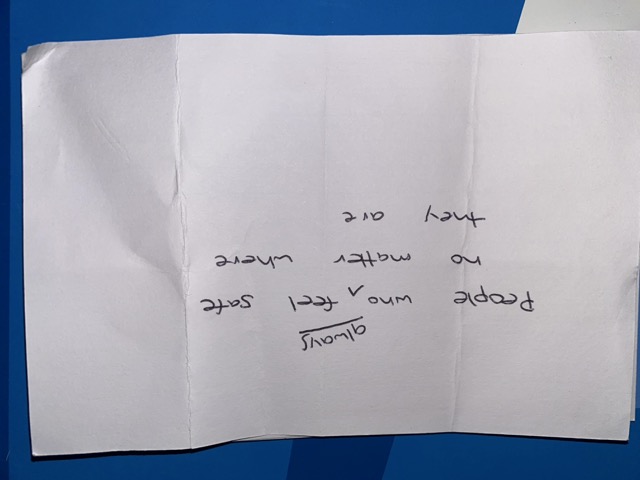 always
People who ^ feel safe
no matter where
they are